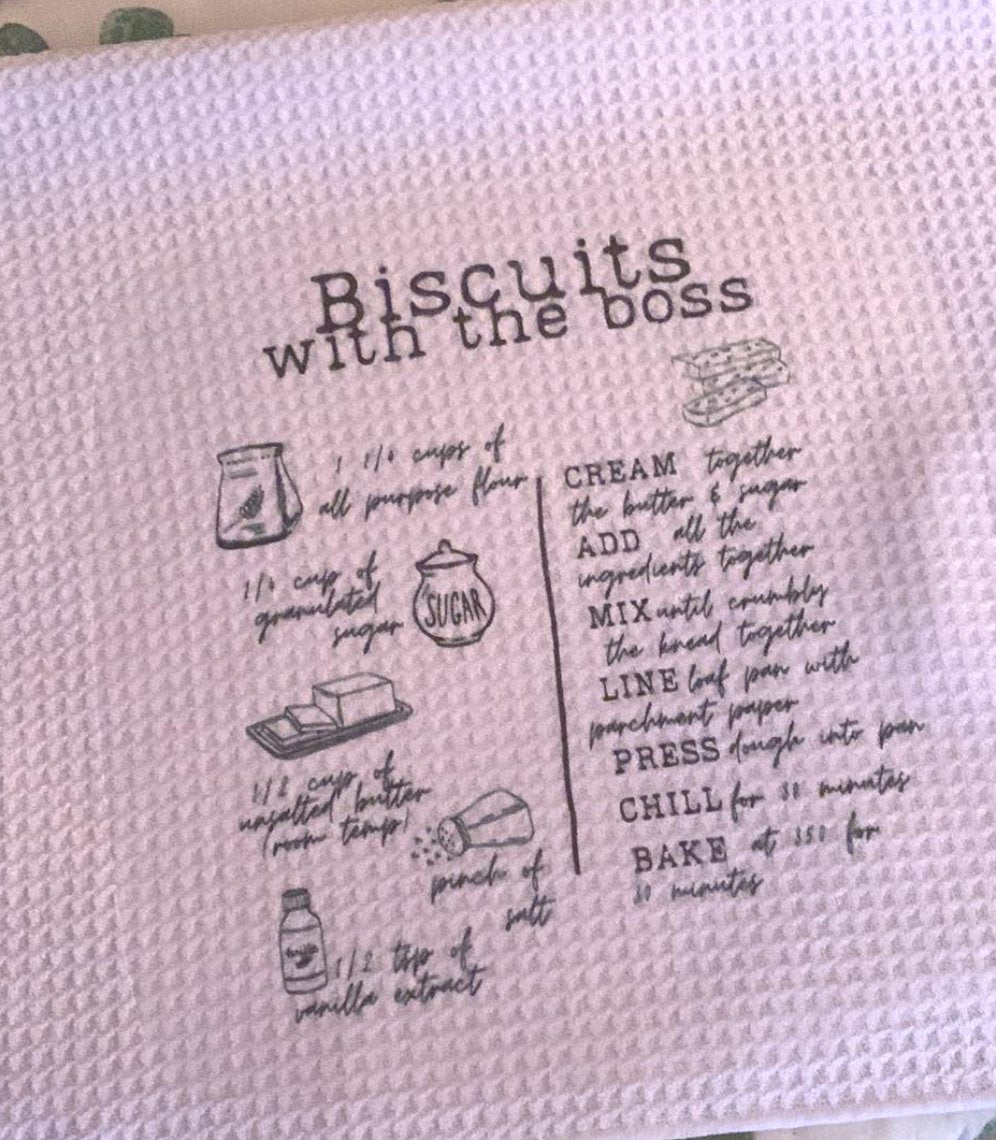 Biscuits
with the boss
cups of
all purpose flour
cup of
granulated
sugar
SUGAR
1/2 cup of
unsalted butter
(room temp)
pinch of
salt
1/2 tsp of
vanilla extract
CREAM together
the butter & sugar
ADD all the
ingredients together
MIX until crumbly
the knead together
LINE loaf pan with
parchment paper
PRESS dough into pan
CHILL for 30 minutes
BAKE at 350 for
30 minutes